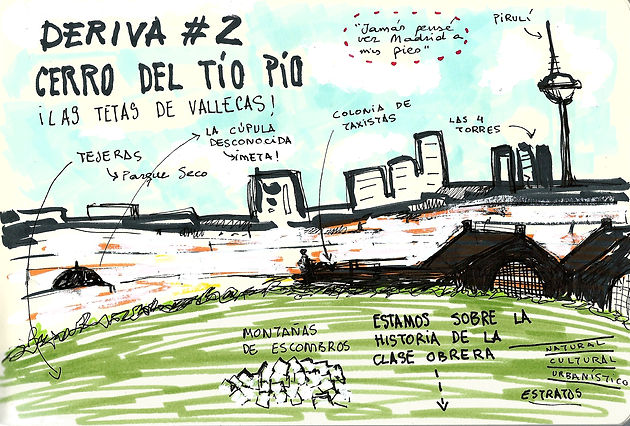 DERIVA #2
CERRO DEL TÍO PÍO
¡LAS TETAS DE VALLECAS!
"Jamás pensé
ver Madrid a
mis pies"
PIRULÍ
TEJERAS
Parque Seco
LA CÚPULA
DESCONOCIDA
¡META!
COLONIA DE
TAXISTAS
LAS 4
TORRES
MONTAÑAS
DE ESCOMBROS
ESTAMOS SOBRE LA
HISTORIA DE LA
CLASE OBRERA
NATURAL
CULTURAL
URBANÍSTICO
ESTRATOS